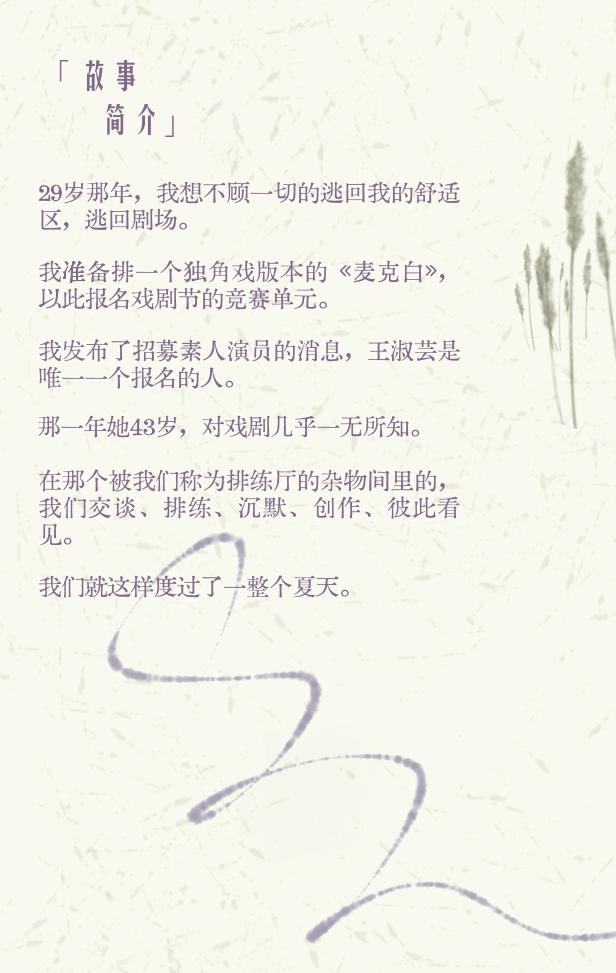 「故事
简介」
29岁那年，我想不顾一切的逃回我的舒适
区，逃回剧场。
我准备排一个独角戏版本的《麦克白》，
以此报名戏剧节的竞赛单元。
我发布了招募素人演员的消息，王淑芸是
唯一一个报名的人。
那一年她43岁，对戏剧几乎一无所知。
在那个被我们称为排练厅的杂物间里的，
我们交谈、排练、沉默、创作、彼此看
见。
我们就这样度过了一整个夏天。